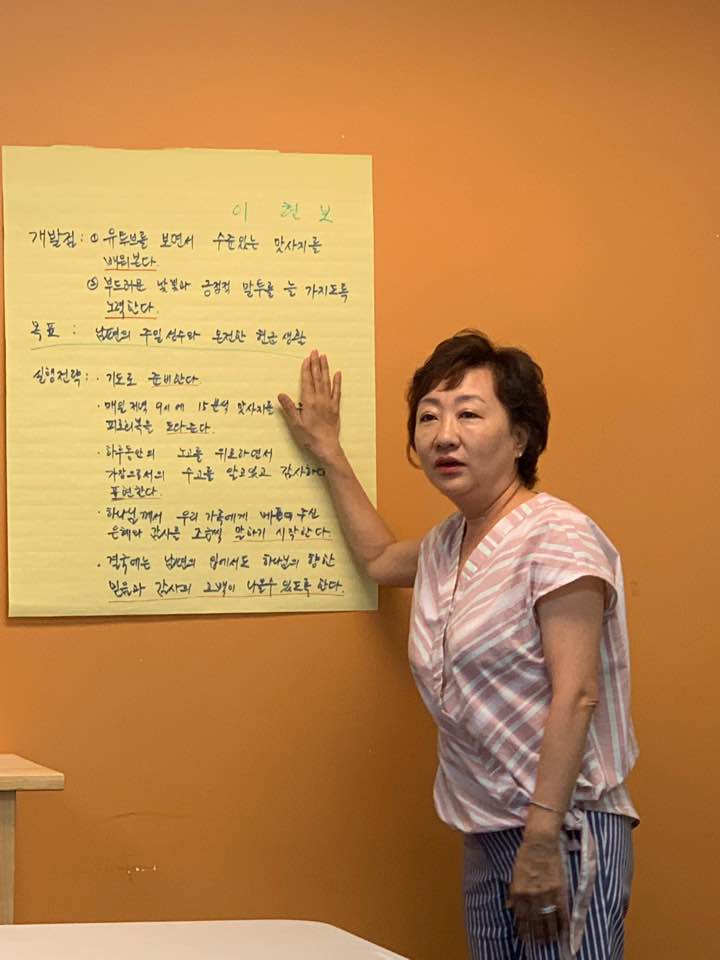 이 현 보
개발점 : ① 유튜브를 보면서 수준있는 맛사지를
배워본다.
② 부드러운 낯빛과 긍정적 말투를 는 가지도록
노력한다.
목표 : 남편의 주일성수와 온전한 헌금생활
실행전략 : · 기도로 준비한다.
· 매일저녁 9시에 15분씩 맛사지를
피로회복을 돕는다.
· 하루동안의 노고를 위로하면서
가장으로서의 수고를 알고있고 감사하다
표현한다.
· 하나님께서 우리 가족에게 주신
은혜와 감사를 조금씩 말하기 시작한다.
· 결국에는 남편의 입에서도 하나님의 향한
믿음과 감사의 고백이 나올수 있도록 한다.